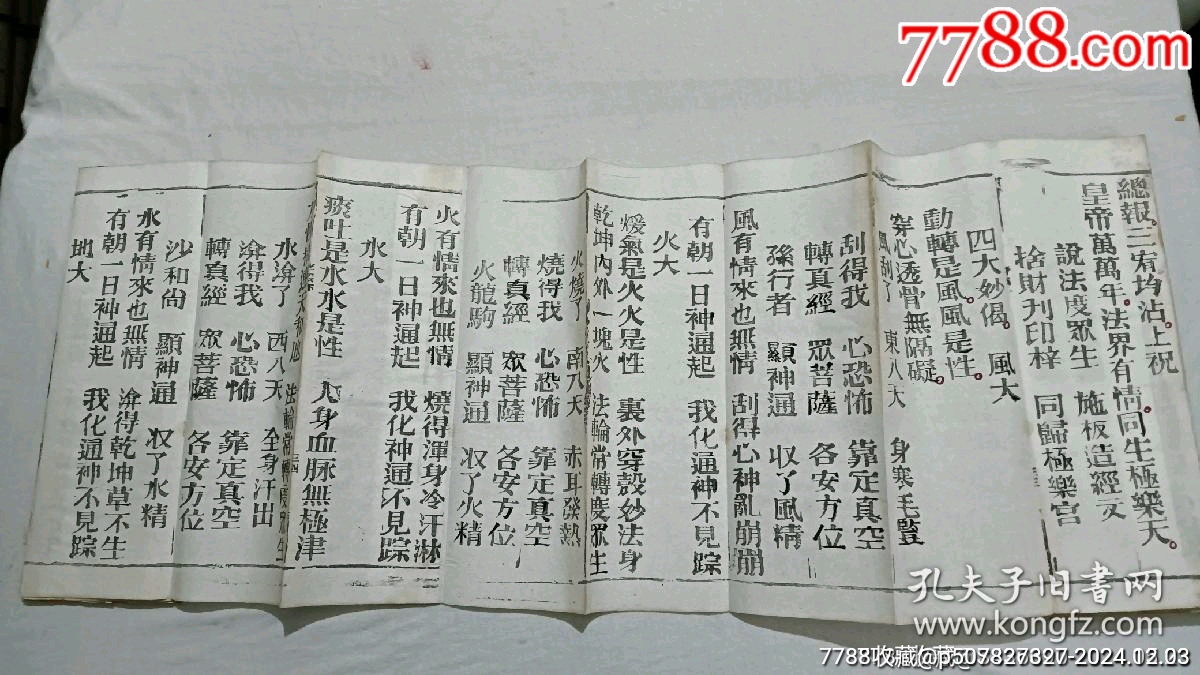 7788.com
總報。三宥均沾。上祝
皇帝萬萬年。法界有情同生極樂天。
說法度眾生 施板造經文
捨財刊印梓 同歸極樂宮
四大妙偈。 風大
動轉是風。風是性。
穿心透骨無隔礙。
風刮了 東八天 身寒毛豎
刮得我 心恐怖 靠定真空
轉真經 眾菩薩 各安方位
孫行者 顯神通 収了風精
風有情來也無情 刮得心神亂崩崩
有朝一日神通起 我化通神不見踪
火大
煖氣是火火是性 裏外穿殼妙法身
乾坤內外一塊火 法輪常轉度眾生
火燒了 南八天 赤耳發熱
燒得我 心恐怖 靠定真空
轉真經 眾菩薩 各安方位
火龍駒 顯神通 収了火精
火有情來也無情 燒得渾身冷汗淋
有朝一日神通起 我化神通不見踪
水大
痰吐是水水是性 人身血脉無極津
法輪常轉度眾生
水渰了 西八天 全身汗出
渰得我 心恐怖 靠定真空
轉真經 眾菩薩 各安方位
沙和尚 顯神通 収了水精
水有情來也無情 渰得乾坤草不生
有朝一日神通起 我化通神不見踪
地大
孔夫子旧书网
www.kongfz.com
7788收藏@p507827327-2024.12.03